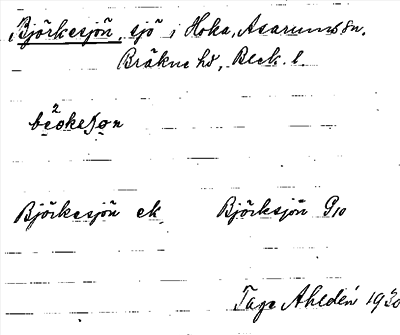 Björkesjön, sjö i Hoka, Asarums sn,
Bräkne hd, Blek. l.
Björkesjön ek. Björksjön G10
Tage Ahldén 1930